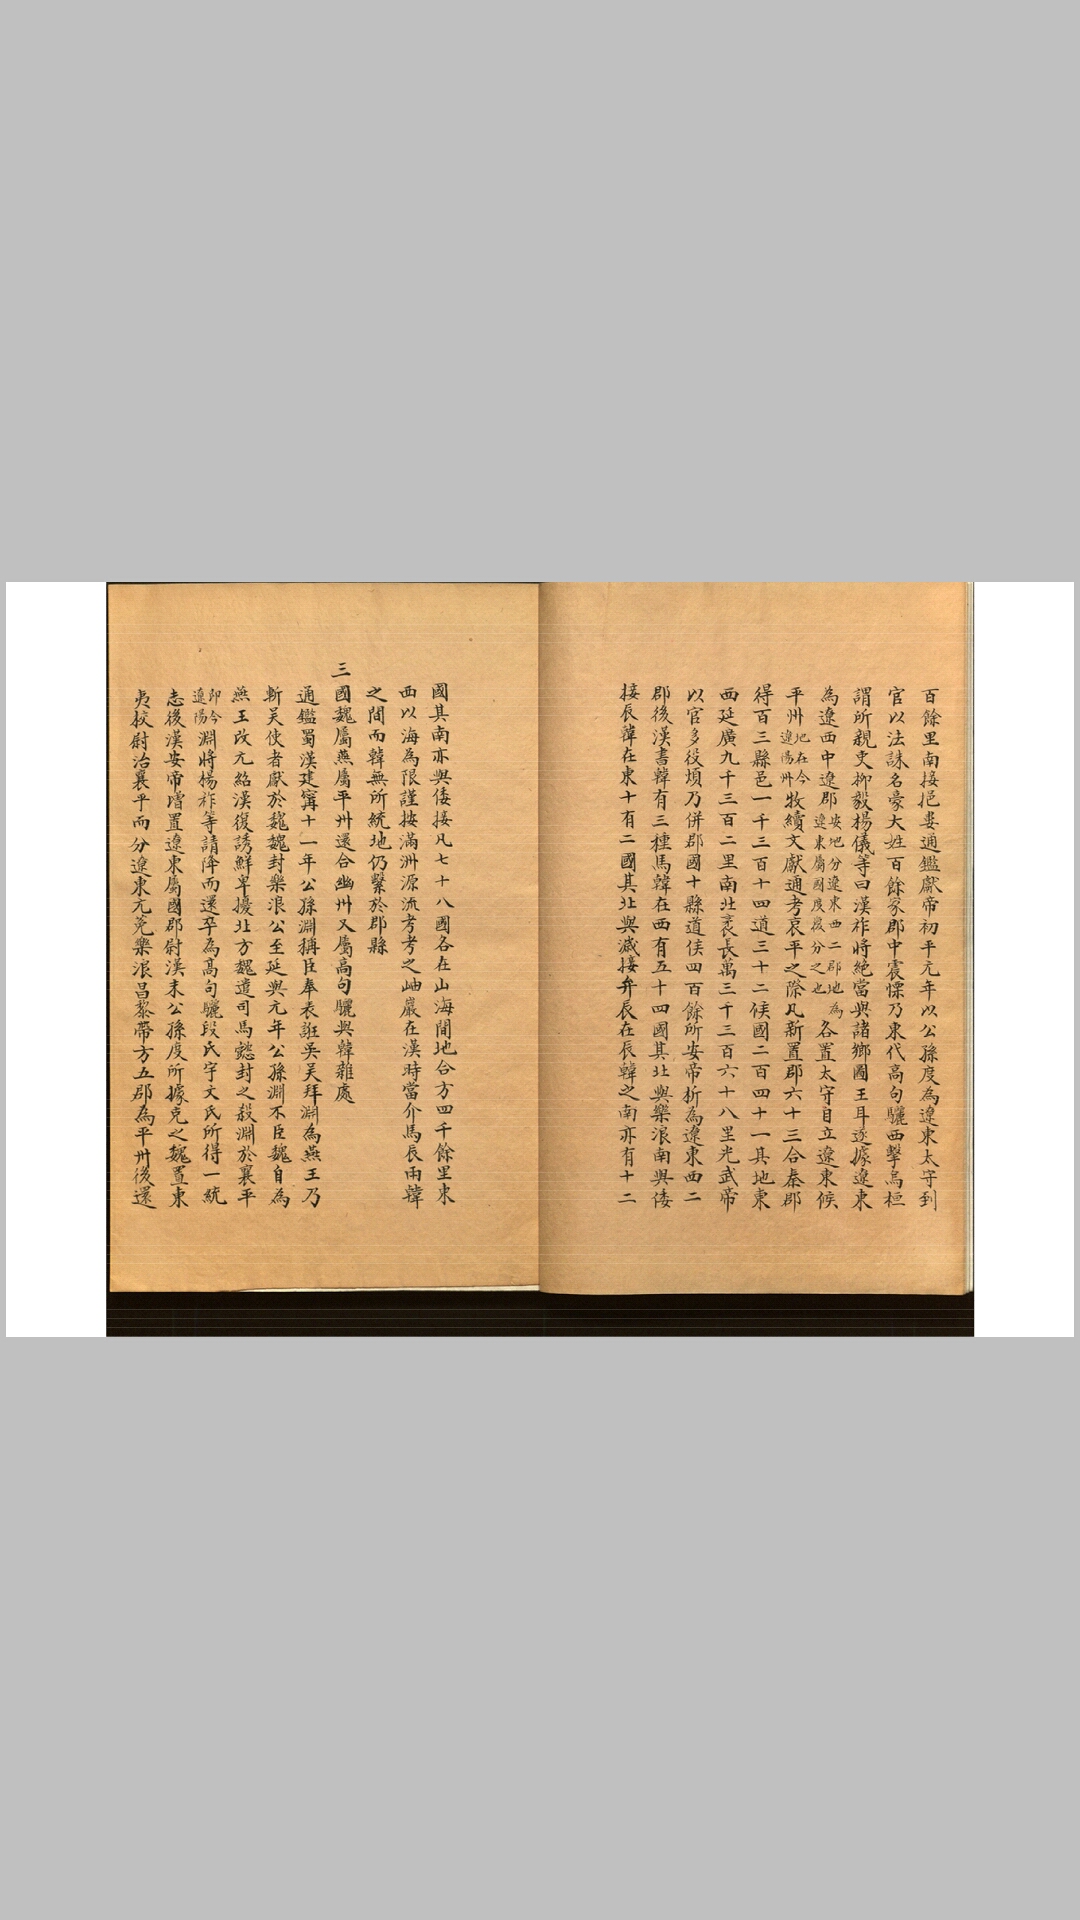 百餘里南接挹婁通鑑獻帝初平元年以公孫度為遼東太守到
官以法誅名豪大姓百餘家郡中震慄乃東代高句驪西擊烏桓
謂所親吏柳毅楊儀等曰漢祚將絕當與諸鄉圖王耳遂據遼東
為遼西中遼郡安地分遼東西二郡地為遼東屬國度後分之也各置太守自立遼東候
平州地在今遼陽州牧續文獻通考哀平之際凡新置郡六十三合秦郡
得百三縣邑一千三百十四道三十二候國二百四十一其地東
西延廣九千三百二里南北袤長萬三千三百六十八里光武帝
以官多役煩乃併郡國十縣道侯四百餘所安帝析為遼東西二
郡後漢書韓有三種馬韓在西有五十四國其北與樂浪南與倭
接辰韓在東十有二國其北與濊接弁辰在辰韓之南亦有十二
國其南亦與倭接凡七十八國各在山海間地合方四千餘里東
西以海為限謹按滿洲源流考考之岫巖在漢時當介馬辰兩韓
之間而韓無所統地仍繫於郡縣
三國魏屬燕屬平州還合幽州又屬高句驪與韓雜處
通鑑蜀漢建寗十一年公孫淵稱臣奉表誑吳吳拜淵為燕王乃
斬吳使者獻於魏魏封樂浪公至延興元年公孫淵不臣魏自為
燕王改元紹漢復誘鮮卑擾北方魏遣司馬懿封之殺淵於襄平
即今遼陽淵將楊祚等請降而還卒為高句驪段氏宇文氏所得一統
志後漢安帝增置遼東屬國郡尉漢末公孫度所據克之魏置東
夷校尉治襄平而分遼東元菟樂浪昌黎帶方五郡為平州後還